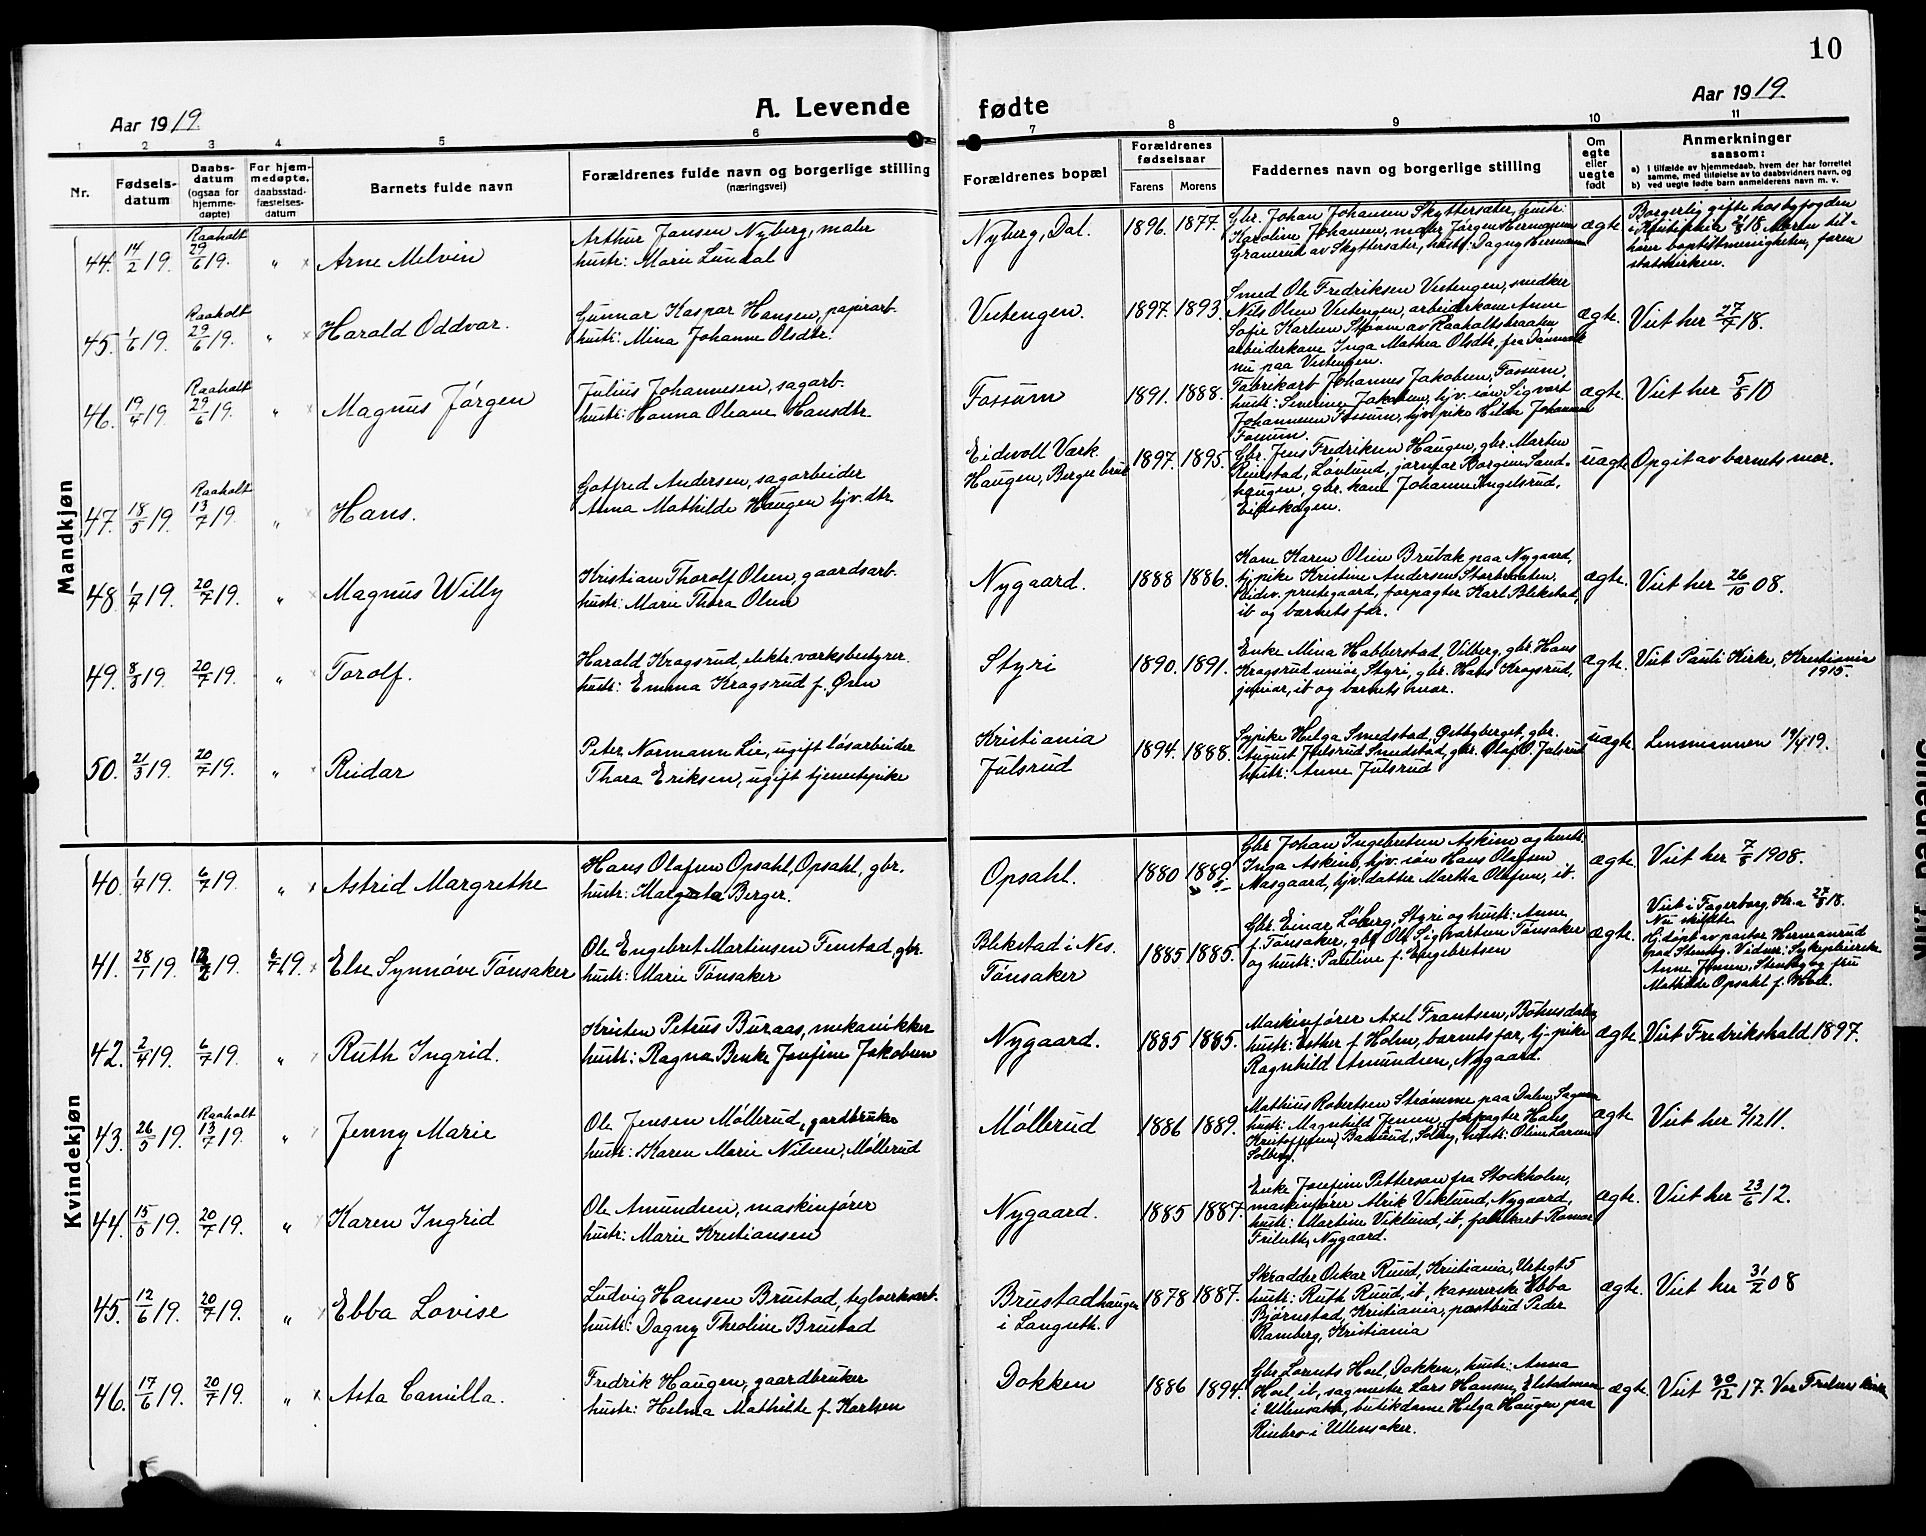 10
Aar 1919.
A. Levende fødte
Aar 1919.
1 2 3 4 5 6 7 8 9 10 11
Nr.
Fødsels-
datum
Daabs-
datum
(ogsaa for
hjemme-
døpte)
For hjem-
medøpte,
daabsstad-
fæstelses-
datum
Barnets fulde navn
Forældrenes fulde navn og borgerlige stilling
(næringsvei)
Forældrenes bopæl
Forældrenes
fødselsaar
Farens Morens
Faddernes navn og borgerlige stilling
Om
egte
eller
uegte
født
Anmerkninger
saasom:
a) I tilfælde av hjemmedaab, hvem der har forrettet
samme, med tilføielse av to daabsvidners navn, og
b) ved uegte fødte barn anmelderens navn m. v.
Mandkjøn
44. 14/2 19. Raaholt 29/6 19. " Arne Melvin
Arthur Jansen Nyberg, maler
hustr: Marie Lundal
Nyberg, Dal. 1896. 1877.
Gbr. Johan Johansen Skyttersæter, hustr:
Karoline Johansen, maler Jørgen Hermansen
Granerud av Skyttersæter, hustr: Dagny Hermansen
ægte
Borgerlig gifte hos byfogden
i Kristiania 21/8 18. Moren til-
hører baptistmenigheten, faren
statskirken.
45. 1/6 19. Raaholt 29/6 19. " Harald Oddvar.
Gunnar Kaspar Hansen, papirarb.
hustr: Mina Johanne Olsdtr.
Vestengen. 1897. 1893.
Smed Ole Fredriksen Vestengen, snedker
Nils Olsen Vestengen, arbeiderkone Anne
Sofie Karlsen Strøm av Raaholtsbraaten
arbeiderkone Inga Mathea Olsdtr, fra Danmark
nu paa Vestengen.
ægte. Viet her 27/7 18.
46. 19/4 19. Raaholt 29/6 19. " Magnus Jørgen
Julius Johannesen, sagarb.
hustr: Hanna Oleane Hansdtr.
Fossum 1891. 1888.
Fabrikarb Johannes Jakobsen, Fossum,
hustr: Severine Jakobsen, tjv. søn Sigvart
Johannesen Fossum, tjv. pike Hilda Johannesen
Fossum.
ægte. Viet her 5/5 10
47. 18/5 19. Raaholt 13/7 19. " Hans.
Gotfred Andersen, sagarbeider
Anna Mathilde Haugen tjv. dtr.
Eidsvoll Værk
Haugen, Berger bruk 1897. 1895.
Gbr. Jens Fredriksen Haugen, gbr. Marten
Reierstad, Løvlund, jomfru Borgny Sand-
haugen, gbr. kone Johanne Ingelsrud,
Eidskogen.
uægte Opgit av barnets mor.
48. 1/4 19. 20/7 19. " Magnus Willy
Kristian Thorolf Olsen, gaardsarb.
hustr: Marie Thora Olsen
Nygaard. 1888 1886.
Kone Karen Olsen Brubak paa Nygaard,
tj. pike Kristine Andersen Storbraaten,
Eidsv. prestegaard, forpagter Karl Blekstad,
ib og barnets far.
ægte. Viet her 26/10 08.
49. 8/3 19. 20/7 19. " Torolf.
Harald Kragsrud, elektr. værksbestyrer
hustr: Emma Kragsrud f. Ören
Styri 1890. 1891.
Enke Mina Habberstad, Vilberg, gbr Hans
Kragsrud senior, Styri, gbr. Hans Kragsrud,
junior, ib og barnets mor.
ægte. Viet Pauli Kirke, Kristiania
1915.
50. 21/3 19. 20/7 19. " Reidar
Peter Normann Lie, ugift løsarbeider
Thora Eriksen, ugift tjenestepike
Kristiania
Julsrud 1894. 1888.
Sypike Helga Smedstad, gbr.
August Julsrud Smedstad, gbr. Olaf O. Julsrud
hustr: Anne Julsrud
uægte. Lensmannen 19/4 19.
Kvindekjøn
40. 1/4 19. 6/7 19. " Astrid Margrethe
Hans Olafsen Opsahl, Opsahl, gbr.
hustr: Margrete Berger.
Opsahl. 1880 1889
Gbr Johan Ingebretsen Askim og hustr:
Inga Askim, tjv. søn Hans Olafsen
Aasgaard, tjv. datter Martha Olafsen, ib.
ægte. Viet her 7/5 1908.
41. 28/1 19. 12/2 19. 6/7 19. Else Synnøve Tønsaker
Ole Engebret Martinsen Fenstad, gbr.
hustr: Marie Tønsaker
Blekstad i Nes.
Tønsaker 1885 1885.
Gbr. Einar Løberg, Styri og hustr: Anne
f. Tønsaker, gbr Ole Sigvartsen Tønsaker
og hustr: Pauline f. Engebretsen
ægte.
Viet i Fagerborg, Kr.a 27/8 18.
Nu skilte
Hj. døpt av pastor Hermanrud
paa Stensby. Vidner: Sykepleierske
Anne Jensen, Stensby og fru
Mathilde Opsahl f. Hoel.
42. 2/4 19. 6/7 19. " Ruth Ingrid.
Kristen Petrus Buraas, mekanikker
hustr: Ragna Benke Josefine Jakobsen
Nygaard. 1885 1885.
Maskinfører Axel Frantsen, Bøhnsdalen
hustr: Esther f. Holm, barnets far, tj. pike
Ragnhild Amundsen, Nygaard.
ægte Viet Fredrikshald 1897.
43. 26/5 19. Raaholt 13/7 19. " Jenny Marie
Ole Jensen Møllerud, gardbruker
hustr: Karen Marie Nilsen, Møllerud
Møllerud 1886 1889.
Mathius Robertsen Strømme paa Dalen, Sagmoen
hustr: Magnhild Jensen, forpagter Hans
Kristoffersen, Baarud, Solby, hustr: Oline Larsen
Solberg.
ægte Viet her 2/12 11.
44. 15/5 19. 20/7 19. " Karen Ingrid
Ole Amundsen, maskinfører
hustr: Marie Kristiansen
Nygaard. 1885 1887.
Enke Josefine Petterson fra Stockholm,
maskinfører Alrik Viklund, Nygaard,
hustr: Martine Viklund, ib, fabrikarb Ramar
Nygaard.
ægte. Viet her 23/6 12.
45. 12/6 19. 20/7 19. " Ebba Lovise
Ludvig Hansen Brustad, teglverksarb.
hustr: Dagny Theoline Brustad
Brustadhaugen
i Langseth. 1878 1887.
Skrædder Oskar Ruud, Kristiania,
hustr: Ruth Ruud, ib, kasererske Ebba
Bjørnstad, Kristiania, postbud Peder
Ramberg, Kristiania
ægte. Viet her 31/7 08
46. 17/6 19. 20/7 19. " Asta Camilla.
Fredrik Haugen, gaardbruker
hustr: Helma Mathilde f. Karlsen
Dokken 1886 1894.
Gbr Lorents Hoel, Dokken, hustr: Anna
Hoel, ib, sagmester Lars Hansen,
i Ullensaker, butikdame Helga Haugen paa
i Ullensaker.
ægte. Viet 30/12 17. Vor Frelsers kirke